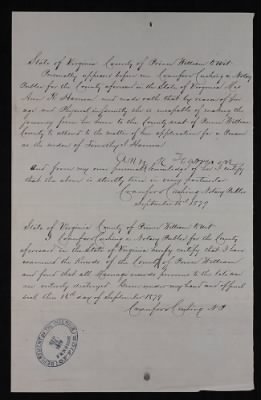 State of Virginia County of Prince William to wit
Personally appears before me Crawford Cushing a Notary
Public for the County aforesaid in the State of Virginia Mrs
Ann R. and made oath that by reason of her
age and Physical infirmity she is incapable of making the
journey from her home to the County seat of Prince William
County to attend to the matter of her application for a Pension
as the widow of Timothy
Ann R
And from my own personal knowledge of her I certify
that the above is strictly true in every particular
Crawford Cushing Notary Public
September 16th 1879
State of Virginia County of Prince William to wit
I Crawford Cushing a Notary Public for the County
aforesaid in the State of Virginia hereby certify that I have
examined the Records of the County of Prince William
and find that all Marriage records previous to the late war
are entirely destroyed Given under my hand and official
seal this 16th day of September 1879
Crawford Cushing N P